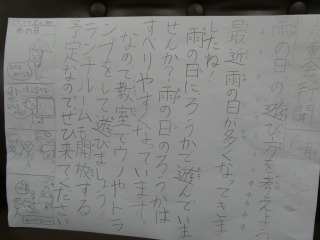 児童会新聞
雨の日の遊び方を考えよう
最近雨の日が多くなってきま
したね!
雨の日にろうかで遊んでいま
せんか?雨の日のろうかは
すべりやすくなっています。
なので教室でウノやトラ
ンプをして遊びましょう!
ランチルームも開放する
予定なのでぜひ来てください